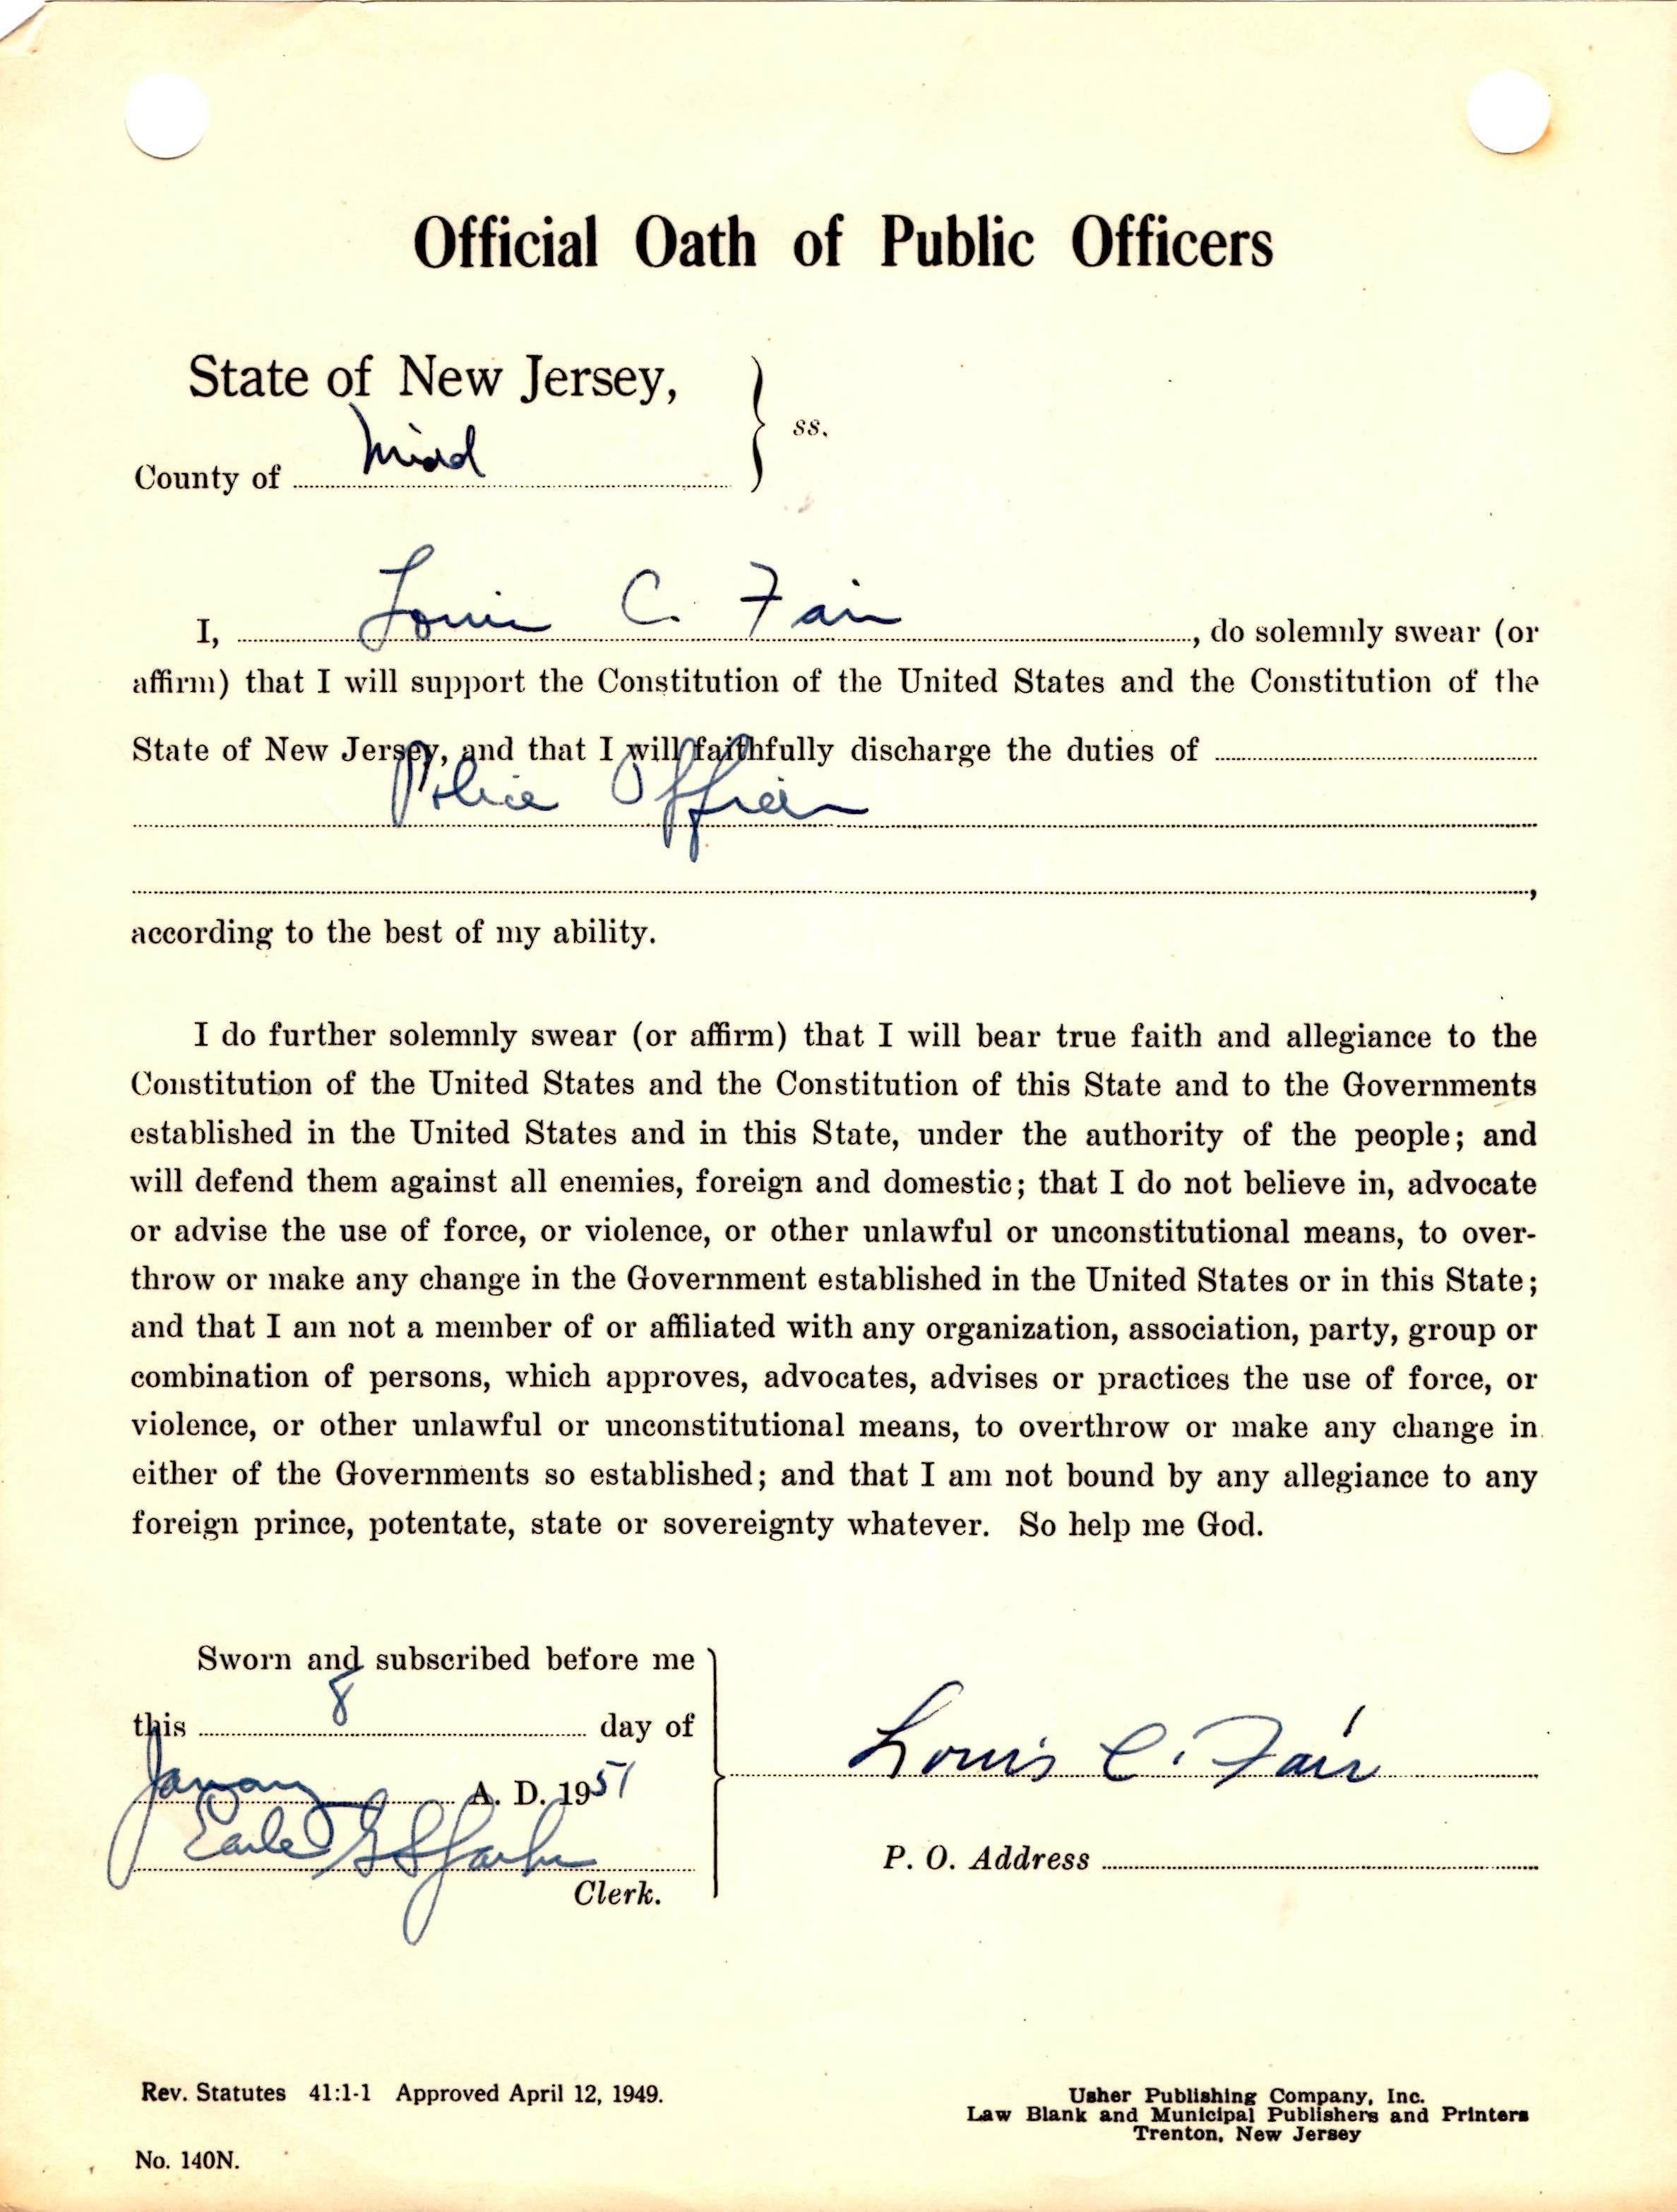 Official Oath of Public Officers
State of New Jersey,
ss.
County of Midd
I, Louis C. Fair, do solemnly swear (or
affirm) that I will support the Constitution of the United States and the Constitution of the
State of New Jersey, and that I will faithfully discharge the duties of
Police Officer
,
according to the best of my ability.
I do further solemnly swear (or affirm) that I will bear true faith and allegiance to the
Constitution of the United States and the Constitution of this State and to the Governments
established in the United States and in this State, under the authority of the people; and
will defend them against all enemies, foreign and domestic; that I do not believe in, advocate
or advise the use of force, or violence, or other unlawful or unconstitutional means, to over-
throw or make any change in the Government established in the United States or in this State;
and that I am not a member of or affiliated with any organization, association, party, group or
combination of persons, which approves, advocates, advises or practices the use of force, or
violence, or other unlawful or unconstitutional means, to overthrow or make any change in
either of the Governments so established; and that I am not bound by any allegiance to any
foreign prince, potentate, state or sovereignty whatever. So help me God.
Sworn and subscribed before me
this 8 day of
January A. D. 1951
Earle
Clerk.
Louis C. Fair
P. O. Address
Rev. Statutes 41:1-1 Approved April 12, 1949.
No. 140N.
Usher Publishing Company, Inc.
Law Blank and Municipal Publishers and Printers
Trenton, New Jersey